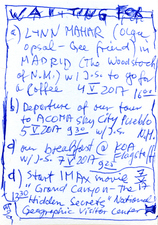 WAITING FOR
a) LYNN MAHAR (Olga
opsal-Gee friend) in
MADRID (The Woodstock
of N.M.) w/J.S. to go for
a coffee 4 V 2017 1600
b) Departure of our tour
to ACOMA Sky City Pueblo
5 V 2017 930 w/J.S. N.M.
c) our breakfast @ KOA
w/J.S. 7 V 2017 Flagstaff
925
d) Start IMAX movie
1330 "Grand Canyon - The
Hidden Secrets" National
Geographic Visitor Center